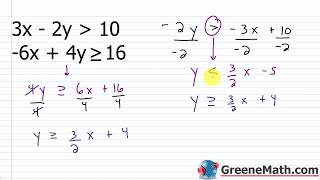 3x - 2y > 10
-6x + 4y ≥ 16
4y ≥ 6x + 16
4 4 4
y ≥ 3/2 x + 4
-2y > -3x + 10
-2 -2 -2
y < 3/2 x - 5
y ≥ 3/2 x + 4
GreeneMath.com